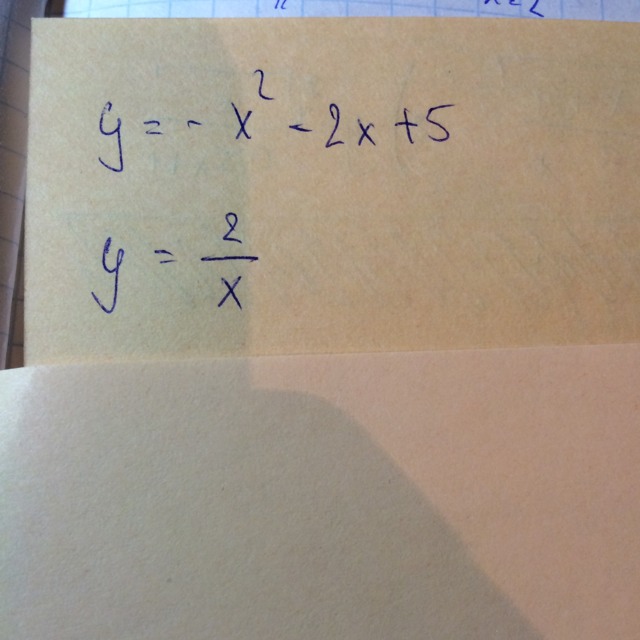 y = - x² - 2x + 5
y = 2/x